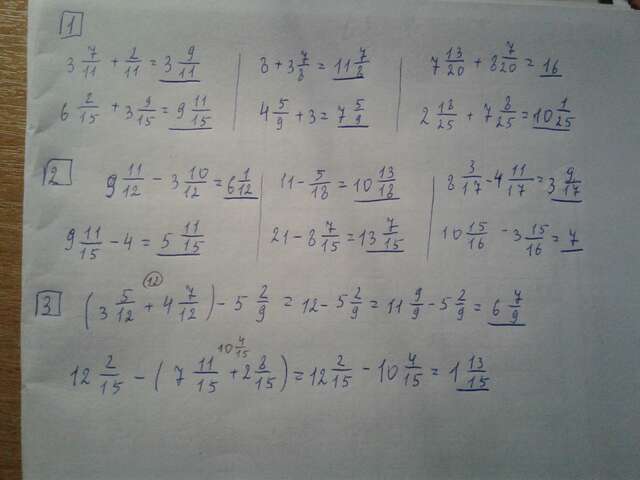 1
3 7/11 + 2/11 = 3 9/11 | 8 + 3 7/8 = 11 7/8 | 7 13/20 + 8 7/20 = 16
6 2/15 + 3 9/15 = 9 11/15 | 4 5/9 + 3 = 7 5/9 | 2 18/25 + 7 8/25 = 10 1/25
2
9 11/12 - 3 10/12 = 6 1/12 | 11 - 5/18 = 10 13/18 | 8 3/17 - 4 11/17 = 3 9/17
9 11/15 - 4 = 5 11/15 | 21 - 8 7/15 = 13 7/15 | 10 15/16 - 3 15/16 = 7
12
3
(3 5/12 + 4 7/12) - 5 2/9 = 12 - 5 2/9 = 11 9/9 - 5 2/9 = 6 7/9
10 4/15
12 2/15 - (7 11/15 + 2 8/15) = 12 2/15 - 10 4/15 = 1 13/15